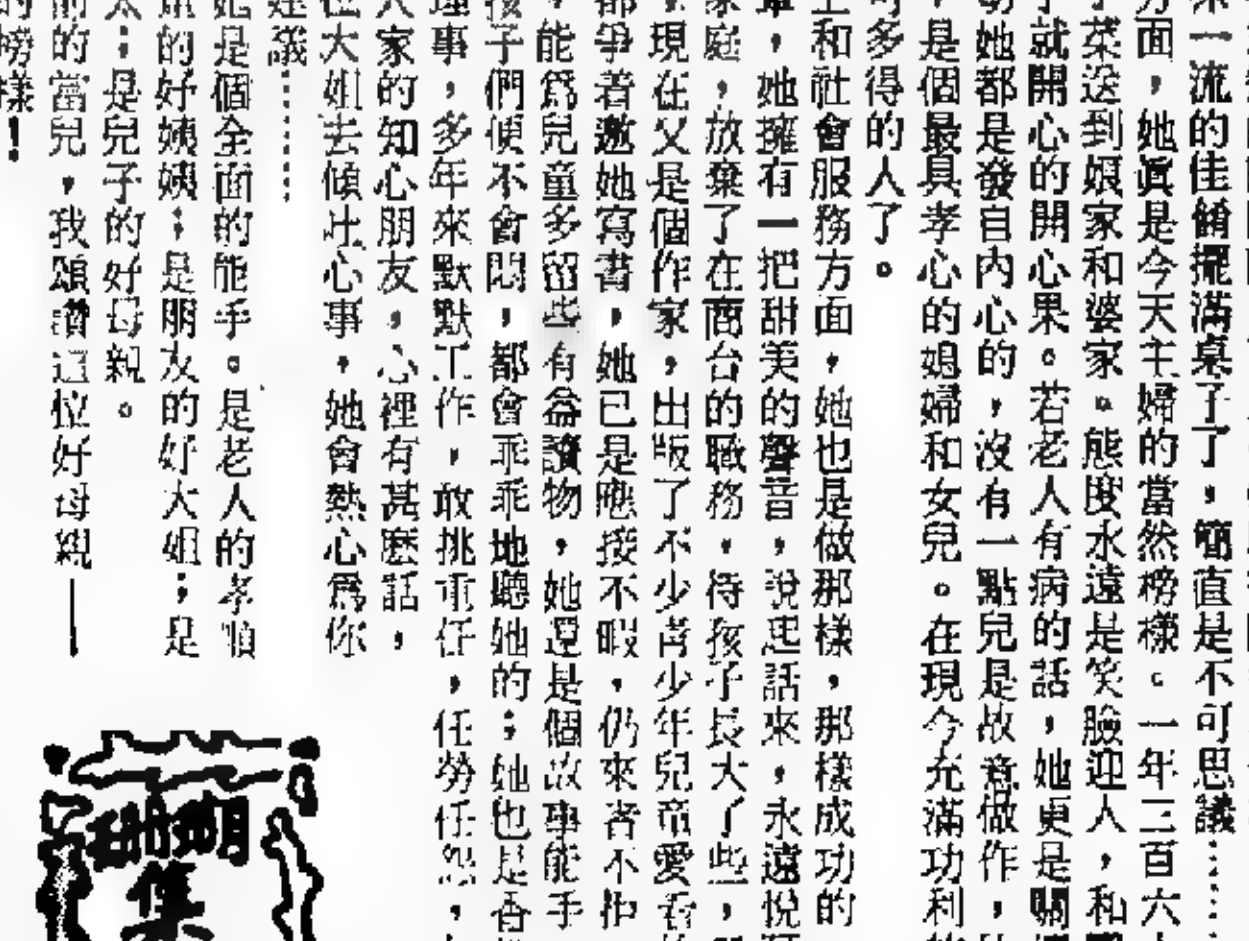 來一流的佳餚擺滿桌子了，簡直是不可思議……
方面，她眞是今天主婦的當然榜樣。一年三百六
子菜送到娘家和婆家。態度永遠是笑臉迎人，和
就開心的開心果。若老人有病的話，她更是關
她都是發自內心的，沒有一點兒是故意做作，
是個最具孝心的媳婦和女兒。在現今充滿功利
可多得的人了。
和社會服務方面，她也是做那樣，那樣成功的
，她擁有一把甜美的聲音，說起話來，永遠悅
家庭，放棄了在商台的職務，待孩子長大了些，
現在又是個作家，出版了不少靑少年兒童愛看
都爭着邀她寫書，她已是應接不暇，仍來者不拒
，能爲兒童多留些有益讀物，她還是個故事能手
孩子們便不會悶，都會乖乖地聽她的；她也是香
理事，多年來默默工作，敢挑重任，任勞任怨，
人家的知心朋友，心裡有甚麼話，
大姐去傾吐心事，她會熱心爲你
建議……
她是個全面的能手。是老人的孝順
的好姨姨；是朋友的好大姐；是
太；是兒子的好母親。
前的當兒，我頌讚這位好母親——
的榜樣！
珊瑚
集